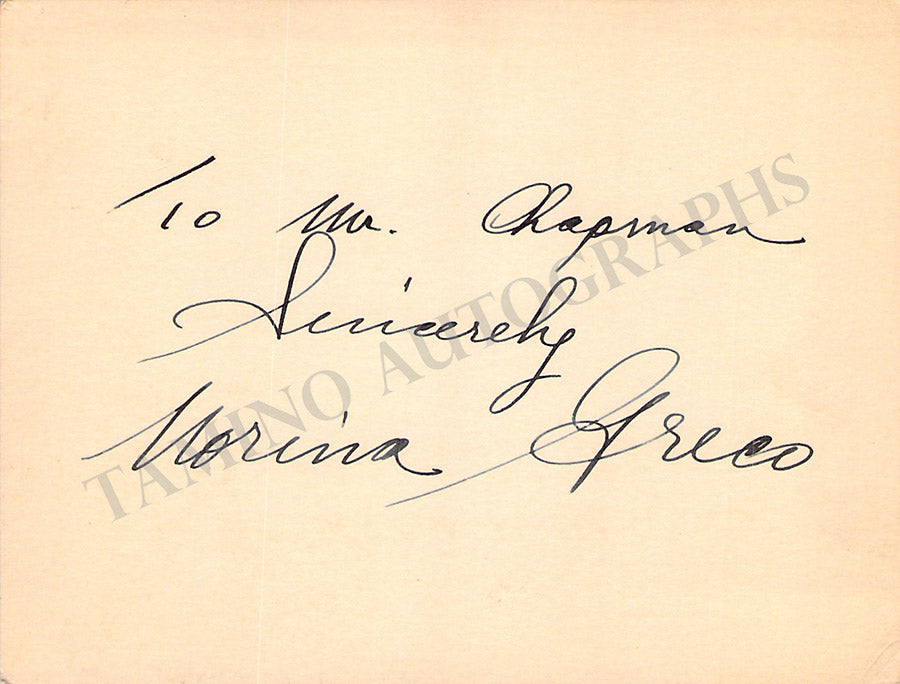 To Mr. Chapman
Sincerely
Norina Greco
TAMINO AUTOGRAPHS